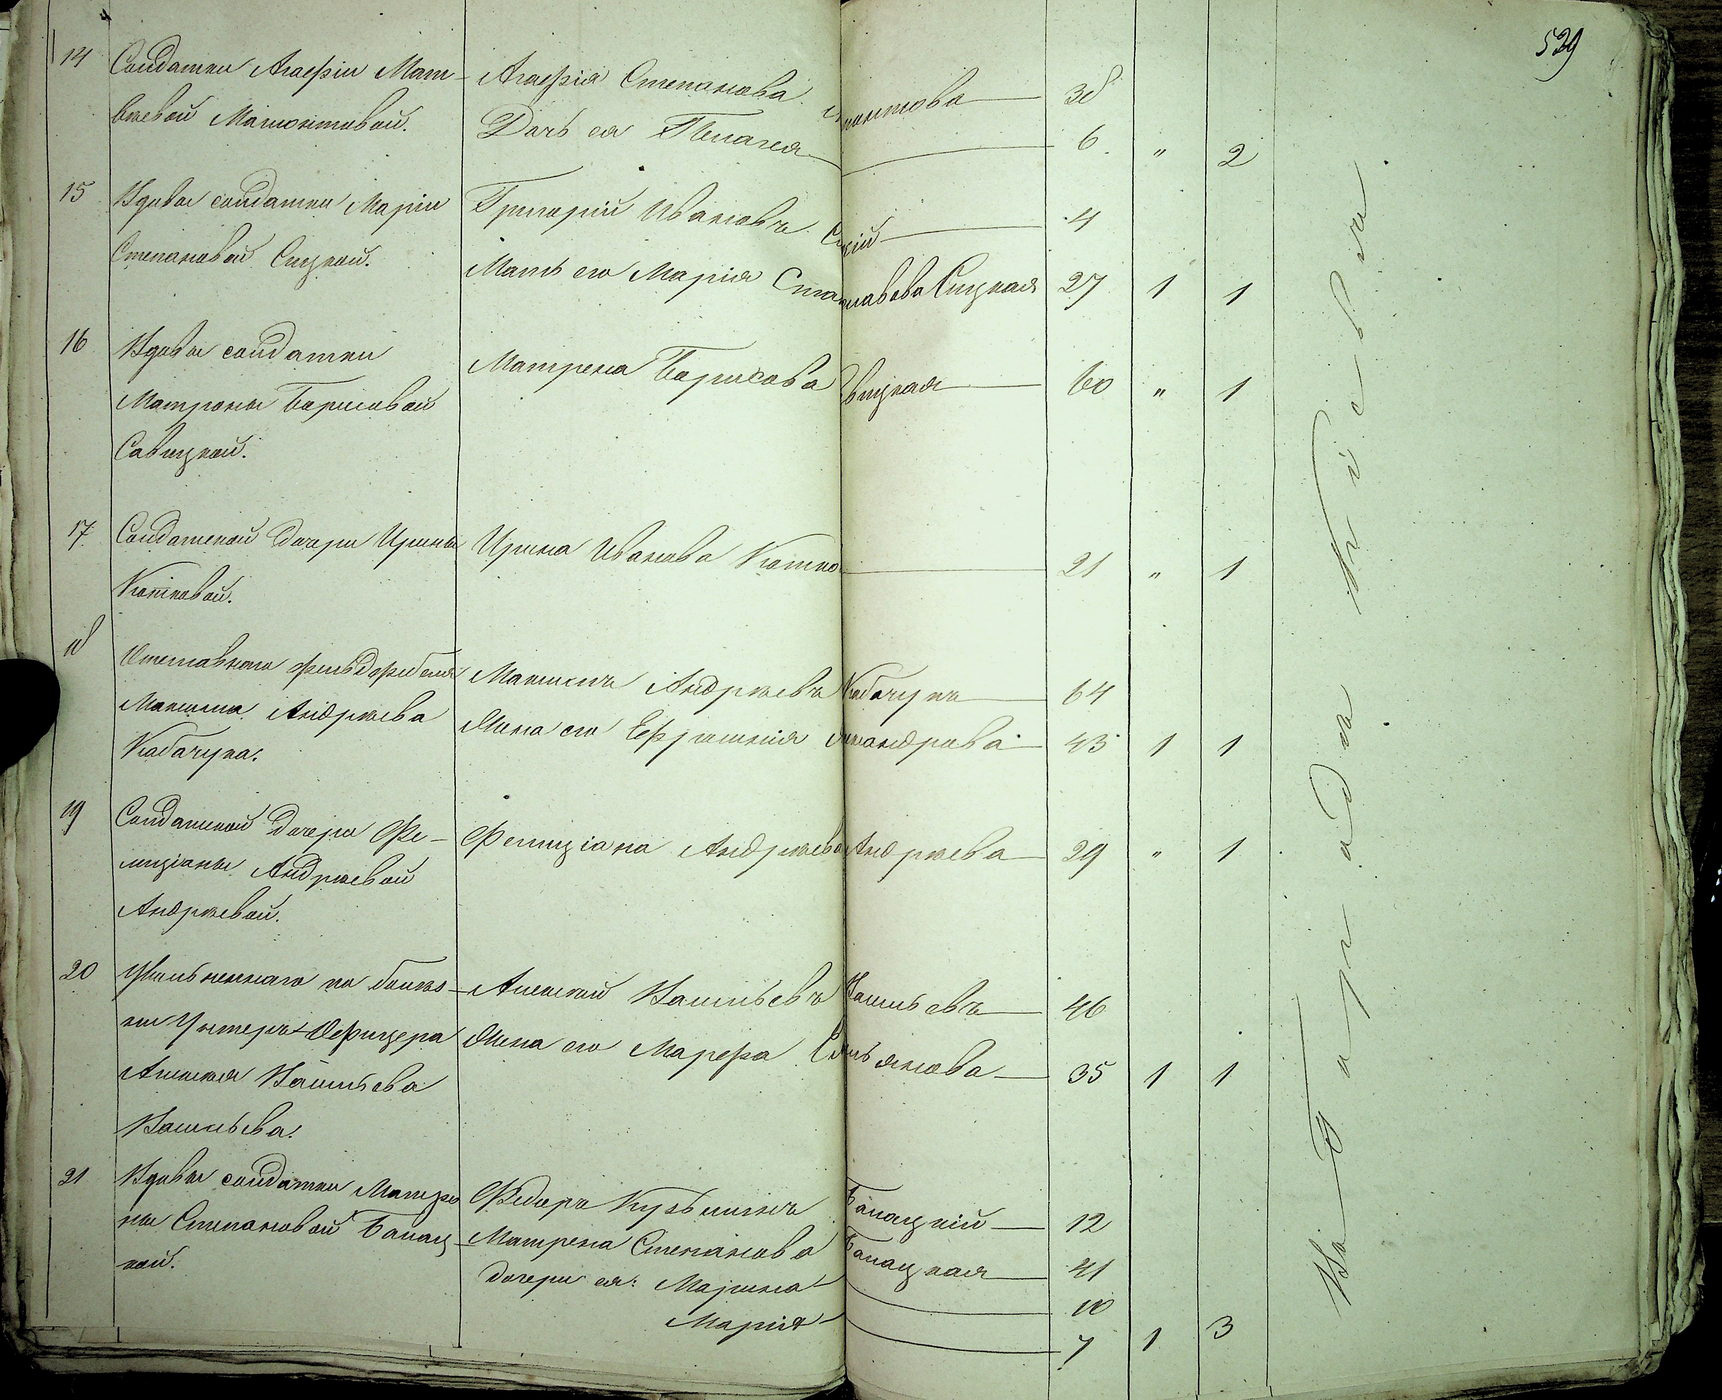 529
14 Солдатки Агафіи Мат-
вѣевой Мамонтовой.
Агафія Степанова Мамонтова 38
Дочь ея Пелагея 6 " 2
15 Вдовы солдатки Маріи
Степановой Сицкой.
Григорій Ивановъ Сицкій 4
Мать его Марія Станиславова Сицкая 27 1 1
16 Вдовы солдатки
Матроны Борисовой
Савицкой.
Матрена Борисова Савицкая 60 " 1
17 Солдатской дочери Ирины
Котковой.
Ирина Иванова Котко 21 " 1
18 Отставнаго фельдфебеля
Максима Андрѣева
Кабачука.
Максимъ Андрѣевъ Кабачукъ 64
Жена его Ефросинія 43 1 1
19 Солдатской дочери Фе-
лиціаны Андрѣевой
Андрѣевой.
Фелиціана Андрѣева Андрѣева 29 " 1
20 Уволеннаго по болѣз-
ни Унтеръ-Офицера
Алексѣя Васильева
Васильева.
Алексѣй Васильевъ Васильевъ 46
Жена его Марфа Емельянова 35 1 1
21 Вдовы солдатки Матро
ны Степановой Банац
кой.
Федоръ Кузьминъ Банацкій 12
Матрена Степанова Банацкая 41
Дочери ея: Марина 10
Марія 7 1 3